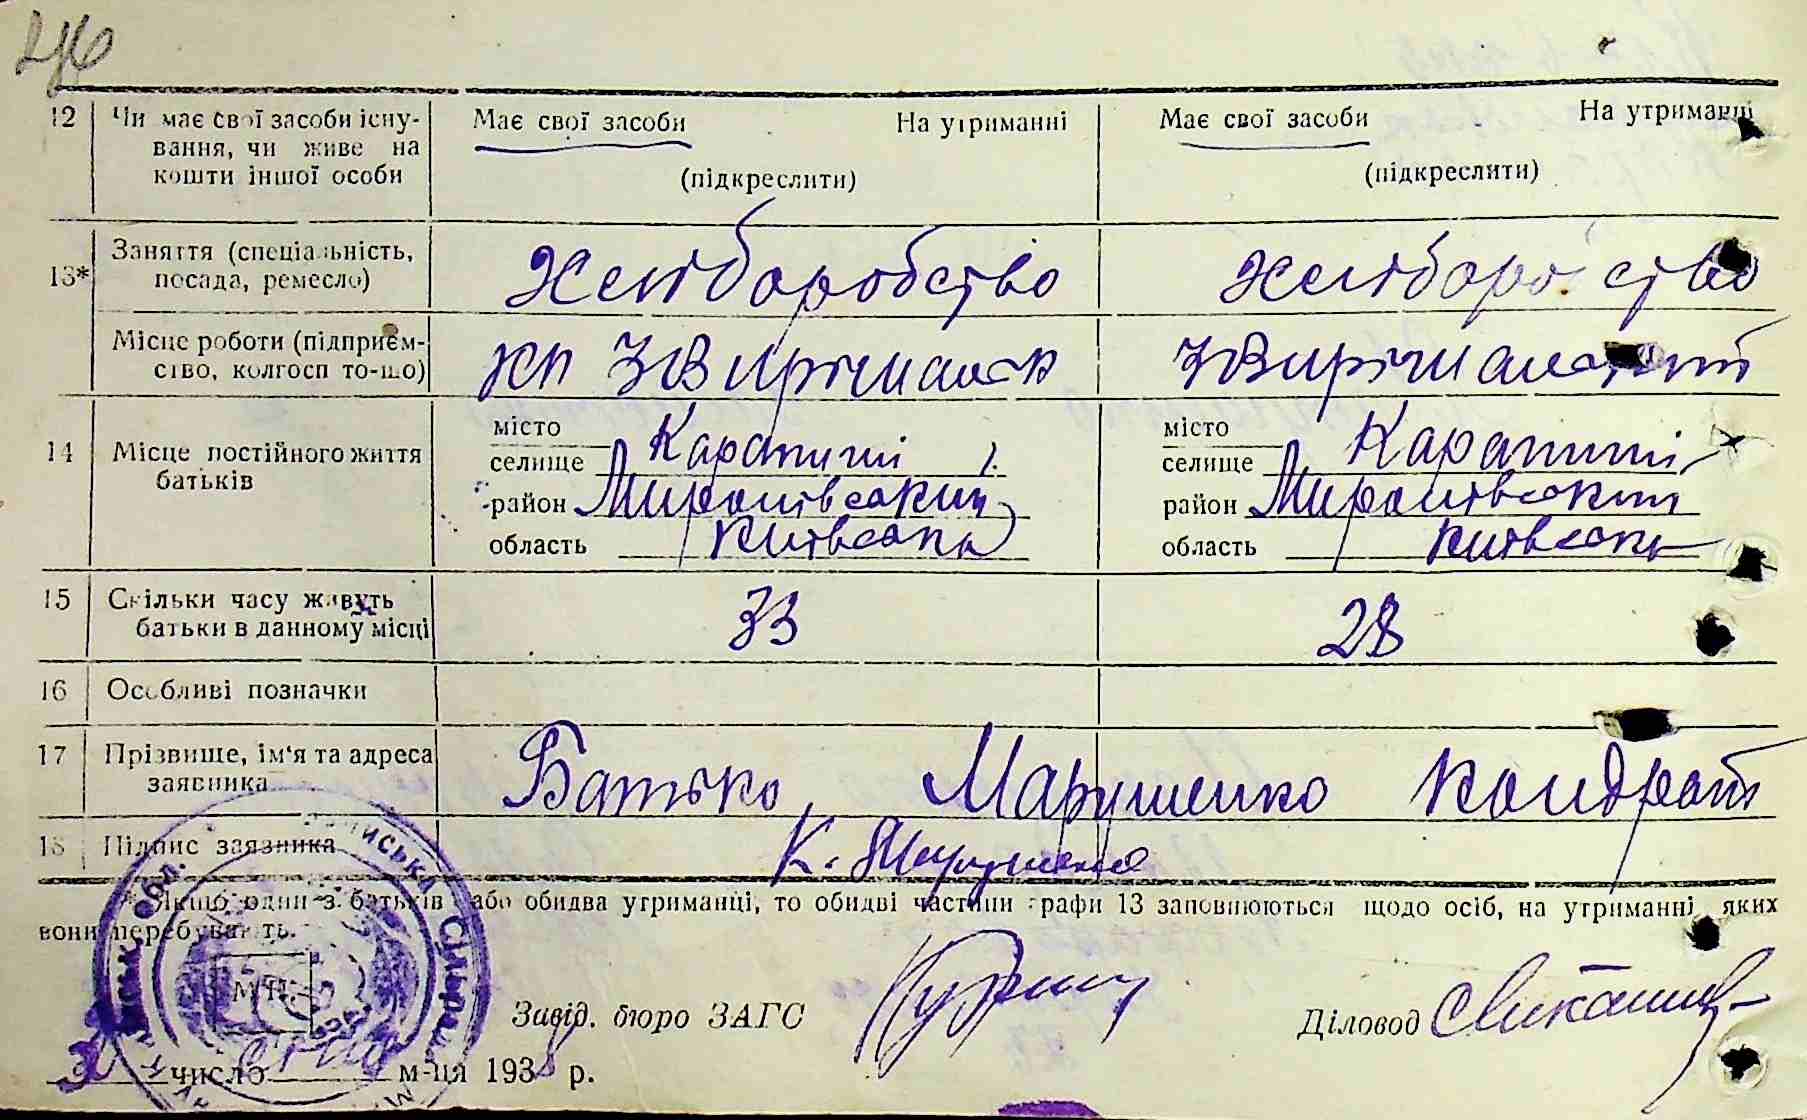 46
12 Чи має свої засоби існу- Має свої засоби На утриманні Має свої засоби На утриманні
вання, чи живе на (підкреслити) (підкреслити)
кошти іншої особи
13* Заняття (спеціальність, Хліборобство Хліборобство
посада, ремесло)
Місце роботи (підприєм-
ство, колгосп то-що)
14 Місце постійного життя місто місто
батьків селище Карапиші селище Карапиші
район Миронівський район Миронівський
область Київська область Київська
15 Скільки часу живуть 33 28
батьки в данному місці
16 Особливі позначки
17 Прізвище, ім'я та адреса Батько Марушенко Кондрат
заявника
18 Підпис заявника К. Марушенко
* Якщо один з батьків або обидва утриманці, то обидві частини графи 13 заповнюються щодо осіб, на утриманні яких
вони перебувають.
М П
Завід. бюро ЗАГС Діловод
число м-ця 1938 р.